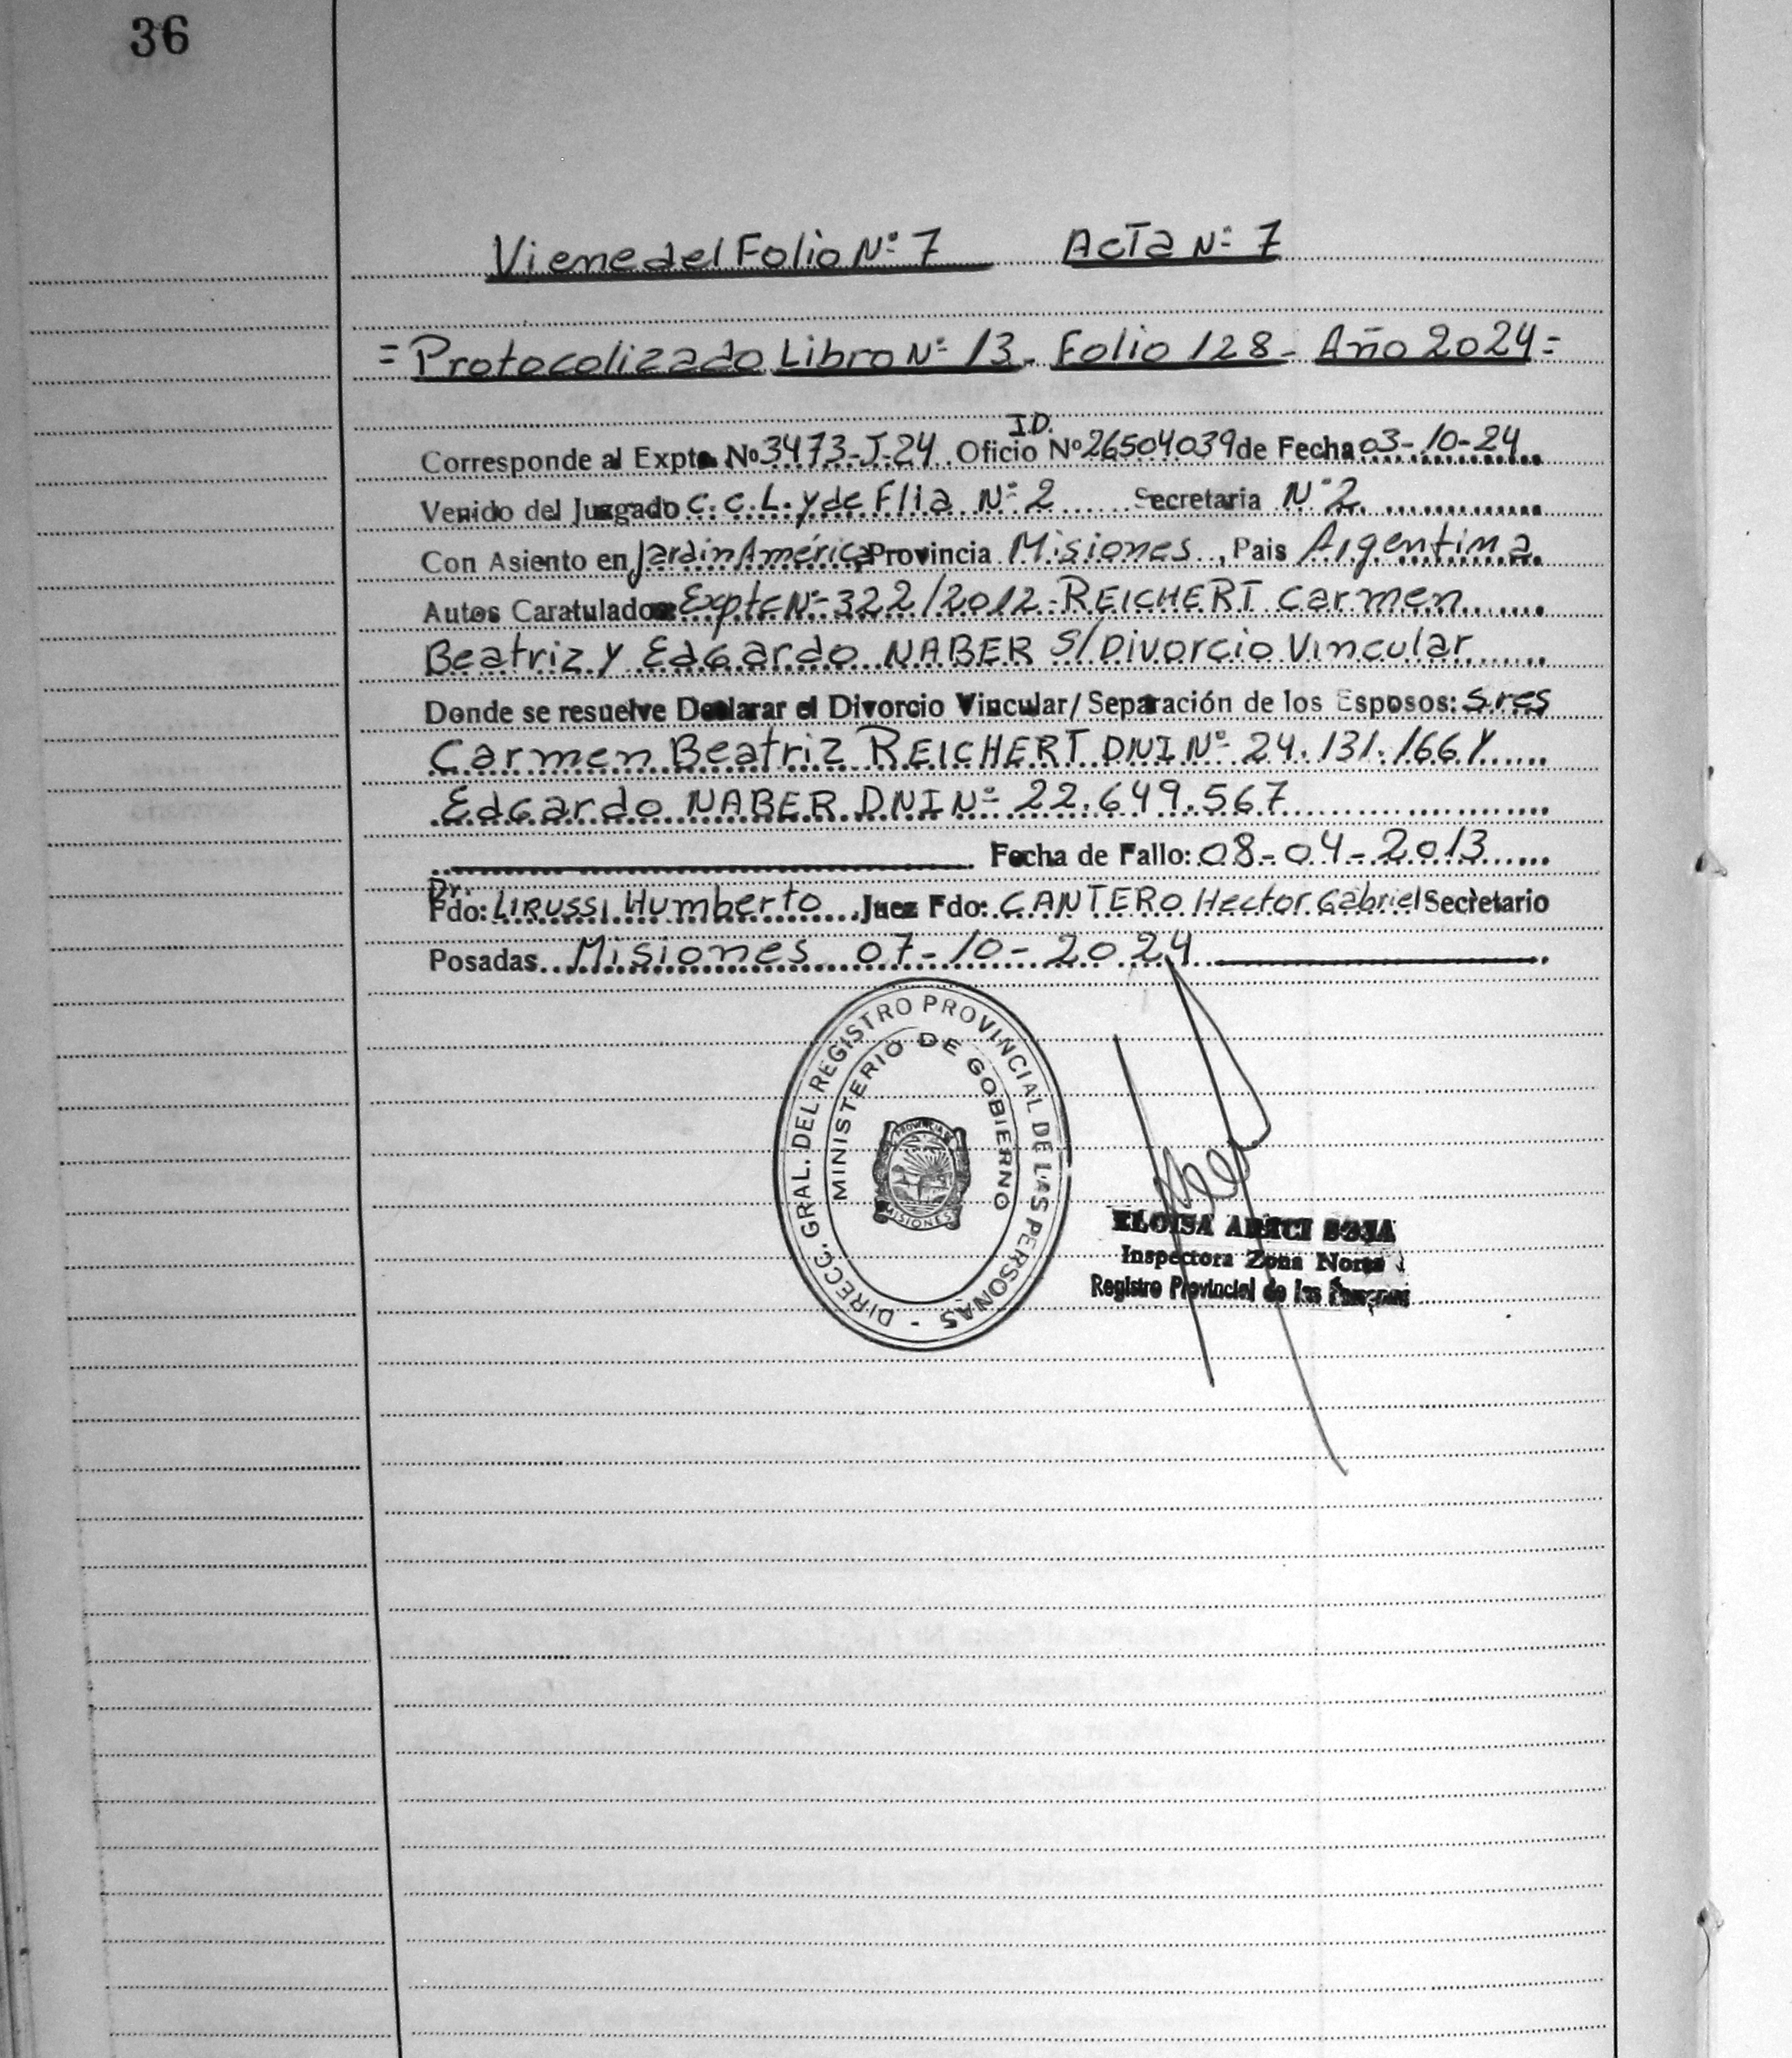 36
Viene del Folio Nº 7 Acta Nº 7
= Protocolizado Libro Nº 13 - Folio 128 - Año 2024 =
I.D.
Corresponde al Expte. Nº 3473-J-24 Oficio Nº 26504039 de Fecha 03-10-24
Venido del Juzgado C. C. L. y de Flia Nº 2 Secretaria Nº 2
Con Asiento en Jardín América Provincia Misiones, Pais Argentina
Autos Caratulados: Expte Nº 322/2012-REICHERT Carmen
Beatriz y Edgardo NABER S/Divorcio Vincular
Donde se resuelve Declarar el Divorcio Vincular/Separación de los Esposos: Sres
Carmen Beatriz REICHERT DNI Nº 24.131.166 Y
Edgardo NABER DNI Nº 22.649.567
Fecha de Fallo: 08-04-2013
Dr.
Fdo: LIRUSSI Humberto Juez Fdo: CANTERO Hector Gabriel Secretario
Posadas Misiones 07-10-2024
DIRECC. GRAL. DEL REGISTRO PROVINCIAL DE LAS PERSONAS -
MINISTERIO DE GOBIERNO
PROVINCIA
MISIONES
ELOISA SOSA
Inspectora Zona Norte
Registro Provincial de las Personas